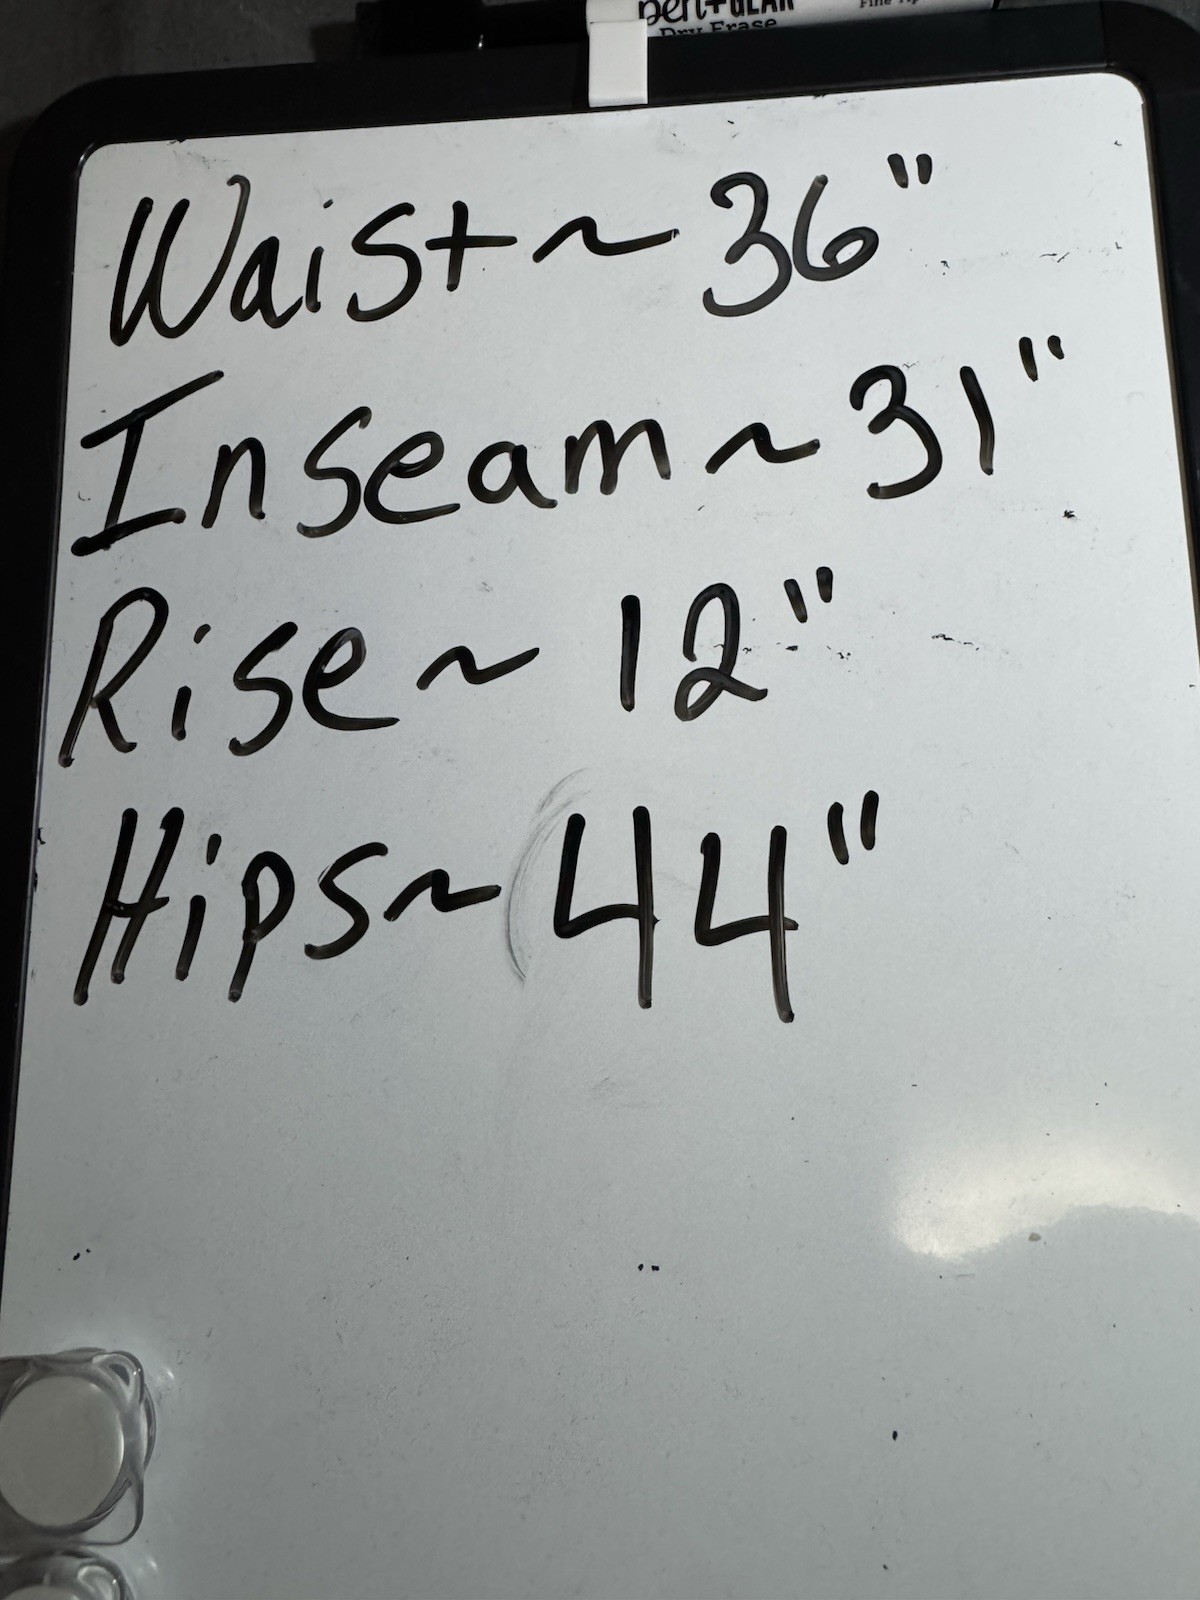 pen+GEAR
Dry Erase
Waist ~ 36"
Inseam ~ 31"
Rise ~ 12"
Hips ~ 44"